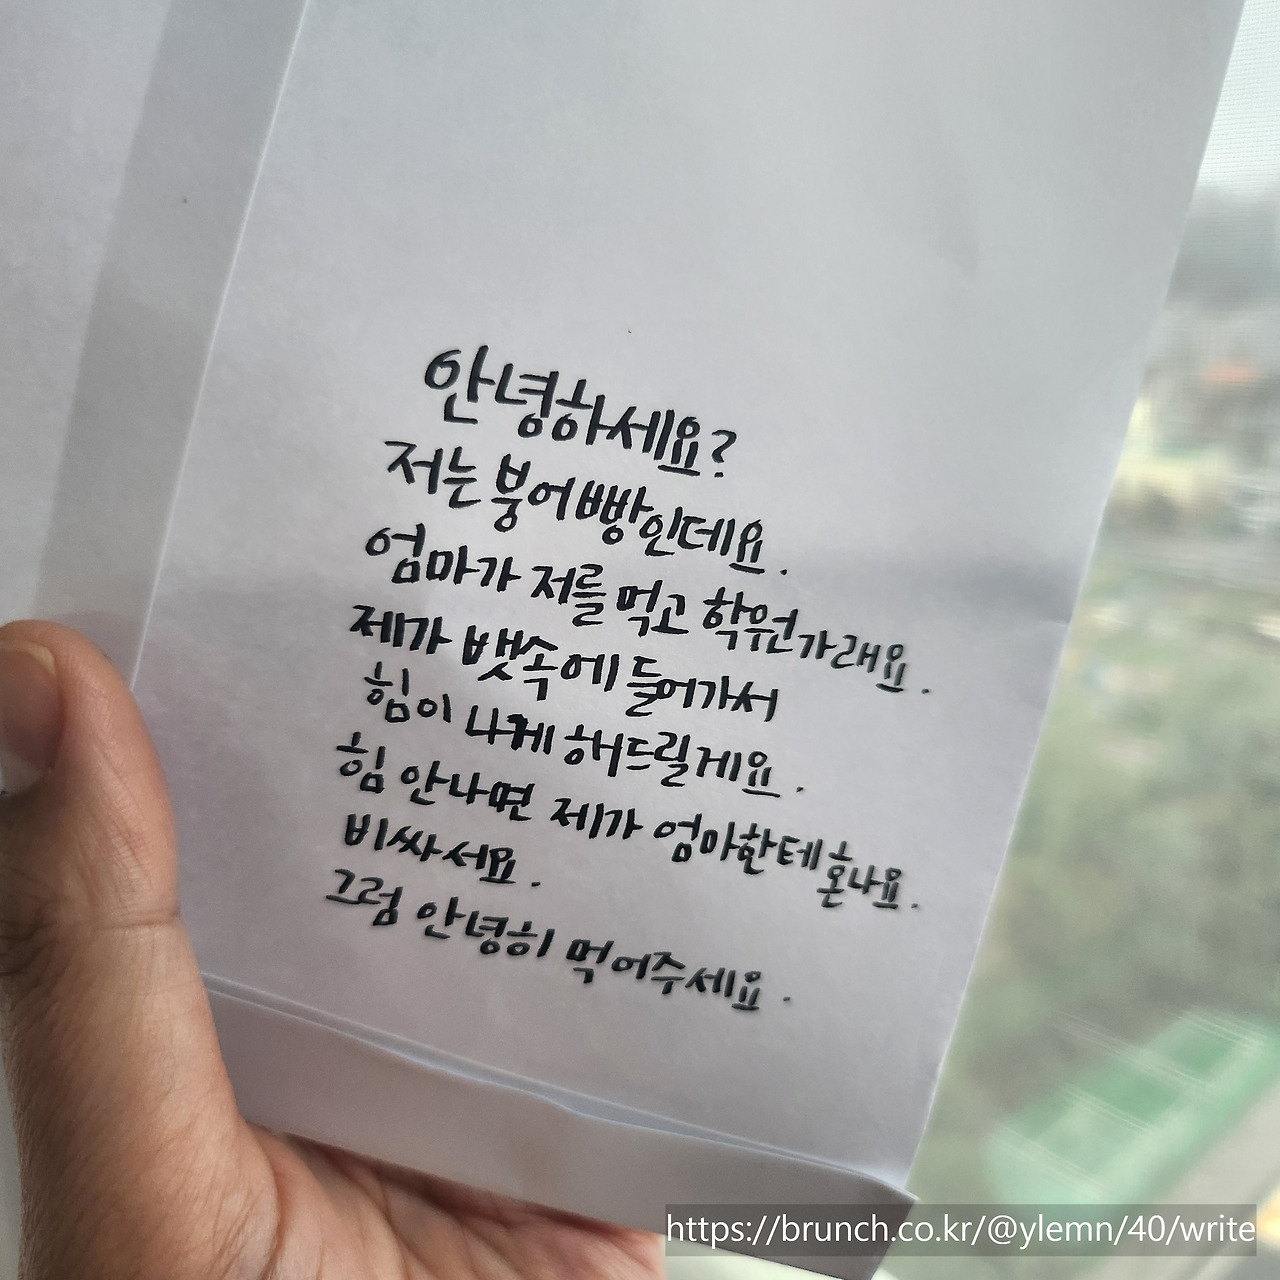 안녕하세요?
저는 붕어빵인데요.
엄마가 저를 먹고 학원가래요.
제가 뱃속에 들어가서
힘이 나게 해드릴게요.
힘 안나면 제가 엄마한테 혼나요.
비싸서요.
그럼 안녕히 먹어주세요.
https://brunch.co.kr/@ylemn/40/write